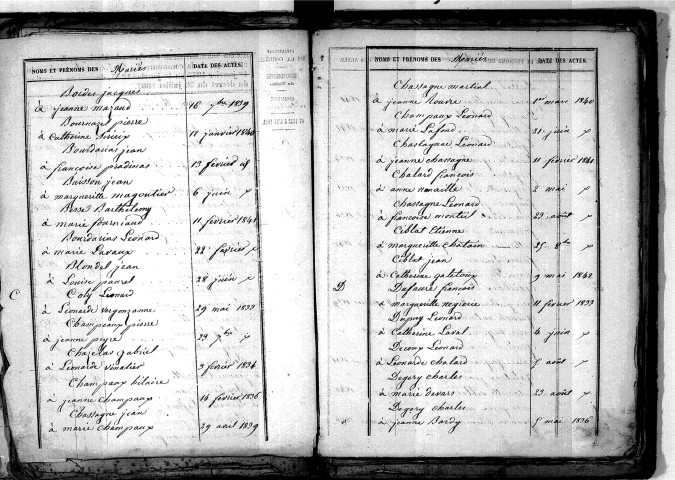 NOMS ET PRÉNOMS DES Mariés DATE DES ACTES.
Bordes jacques
à jeanne mazaud 16 7bre 1839
Bournazel pierre
à Catherine 18 janvier 1840
Bourdarias jean
à françoise pradinas 13 février
Buisson jean
à margueritte magoutier 6 juin
Besse Barthélemy
à marie fourniaud 11 février 1841
Bourdarias Léonard
à marie Lavaux 22 février
Blondel jean
à Louise pauret 28 juin
C Coly Léonard
à Léonarde vergonzanne 29 mai 1833
Champeaux pierre
à jeanne peyre 23 7bre
Chazelas gabriel
à Léonarde vinatier 3 février 1834
Champaux hélaire
à jeanne Champaux 14 février 1836
Chassagne jean
à marie Champaux 29 avril 1839
NOMS ET PRÉNOMS DES Mariés DATE DES ACTES.
Chassagne martial
à jeanne 1er mars 1840
Champaux Léonard
à marie Lafond 21 juin
Chastagnac Léonard
à jeanne chassagne 11 février 1841
Chalard françois
à anne 2 mai
Chassagne Léonard
à françoise monteil 29 août
Ciblot Etienne
à margueritte Chatain 25 8bre
Ciblot jean
à Catherine 9 mai 1842
D Defaure françois
margueritte negrerie 11 février 1833
Dupuy Léonard
à Catherine Laval 4 juin
Decoux Léonard
à Léonarde chalard 5 août
Degery Charles
à marie devars 23 août
Degery Charles
à jeanne Bordy 5 mai 1836